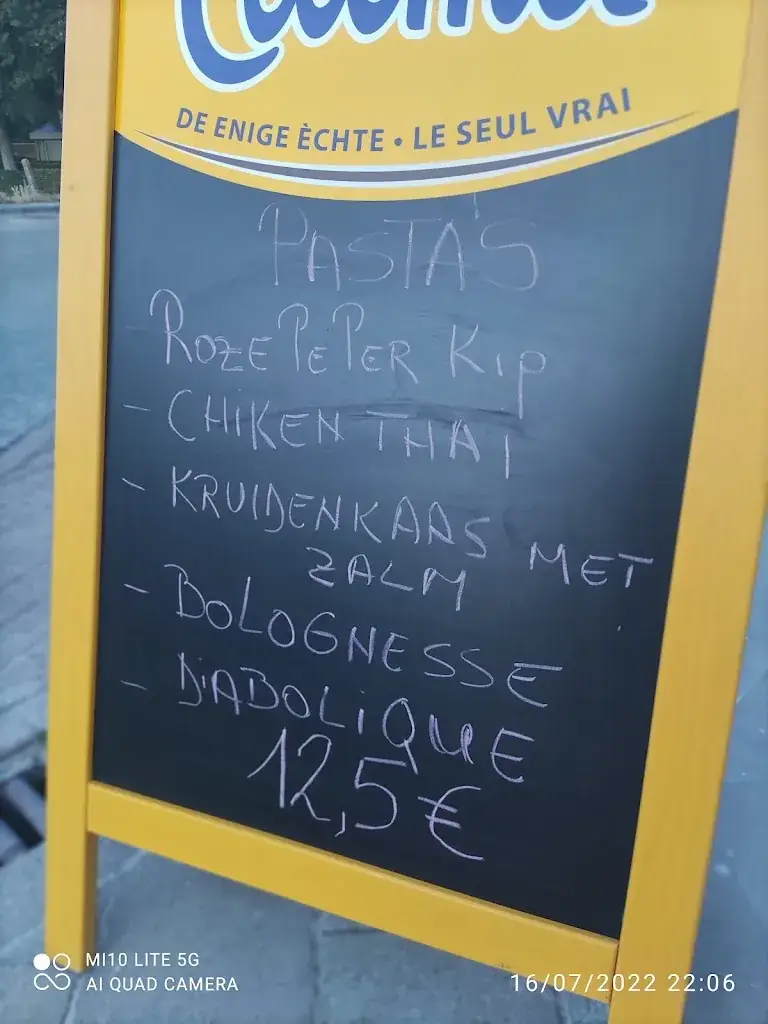 DE ENIGE ÈCHTE • LE SEUL VRAI
PASTA'S
ROZE PEPER KIP
- CHIKEN THAI
- KRUIDENKAAS MET
ZALM
- BOLOGNESSE
- DiABOLiQUE
12,5€
MI10 LITE 5G
AI QUAD CAMERA
16/07/2022 22:06